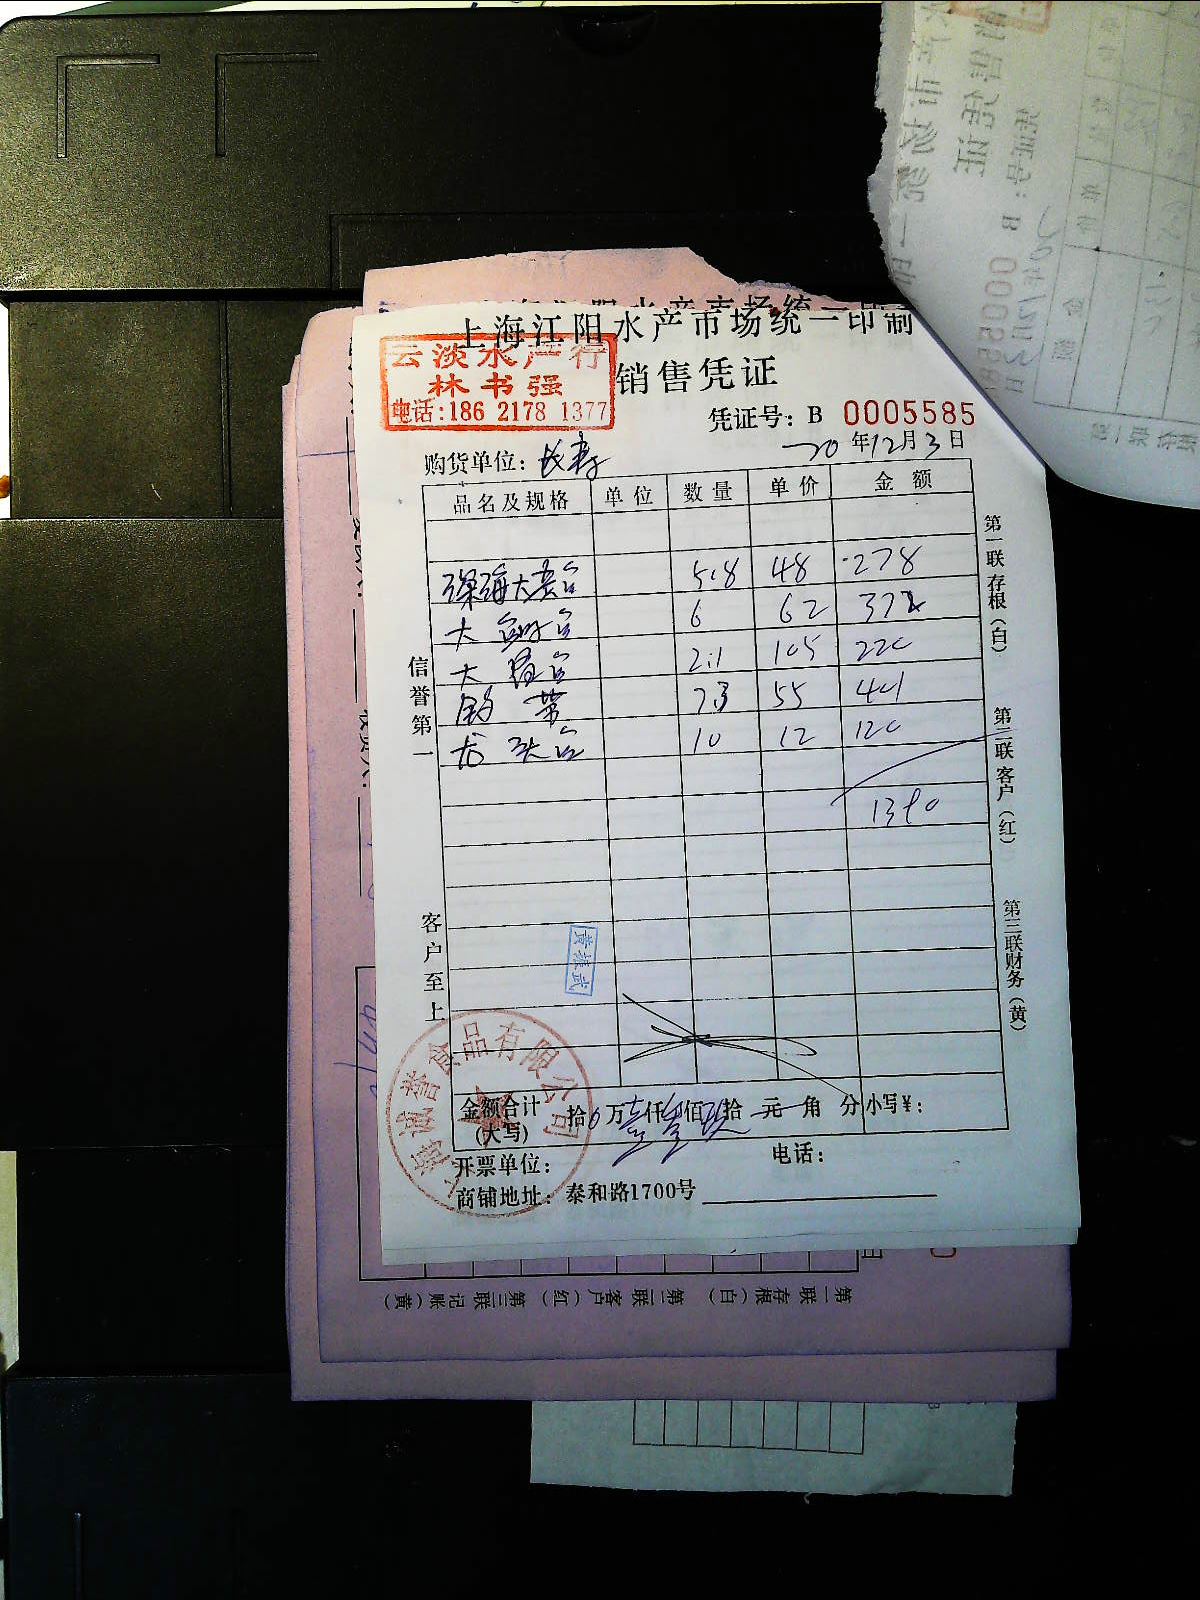 上海江阳水产市场统一印制
云淡水产行
林书强
电话:186 2178 1377
销售凭证
凭证号: B 0005585
20年12月3日
购货单位: 长寿
品名及规格 单位 数量 单价 金额
深海大 5.8 48 278
大 6 62 372
大 2.1 105 220
带 7.3 55 401
龙头 10 12 120
1390
信誉第一
客户至上
第一联存根(白)
第二联客户(红)
第三联财务(黄)
诚誉食品有限公司
金额合计(大写) 拾0万壹仟叁佰玖拾元角分 小写¥:
开票单位: 电话:
商铺地址: 泰和路1700号
第一联 存根(白) 第二联 客户(红) 第三联 记账(黄)